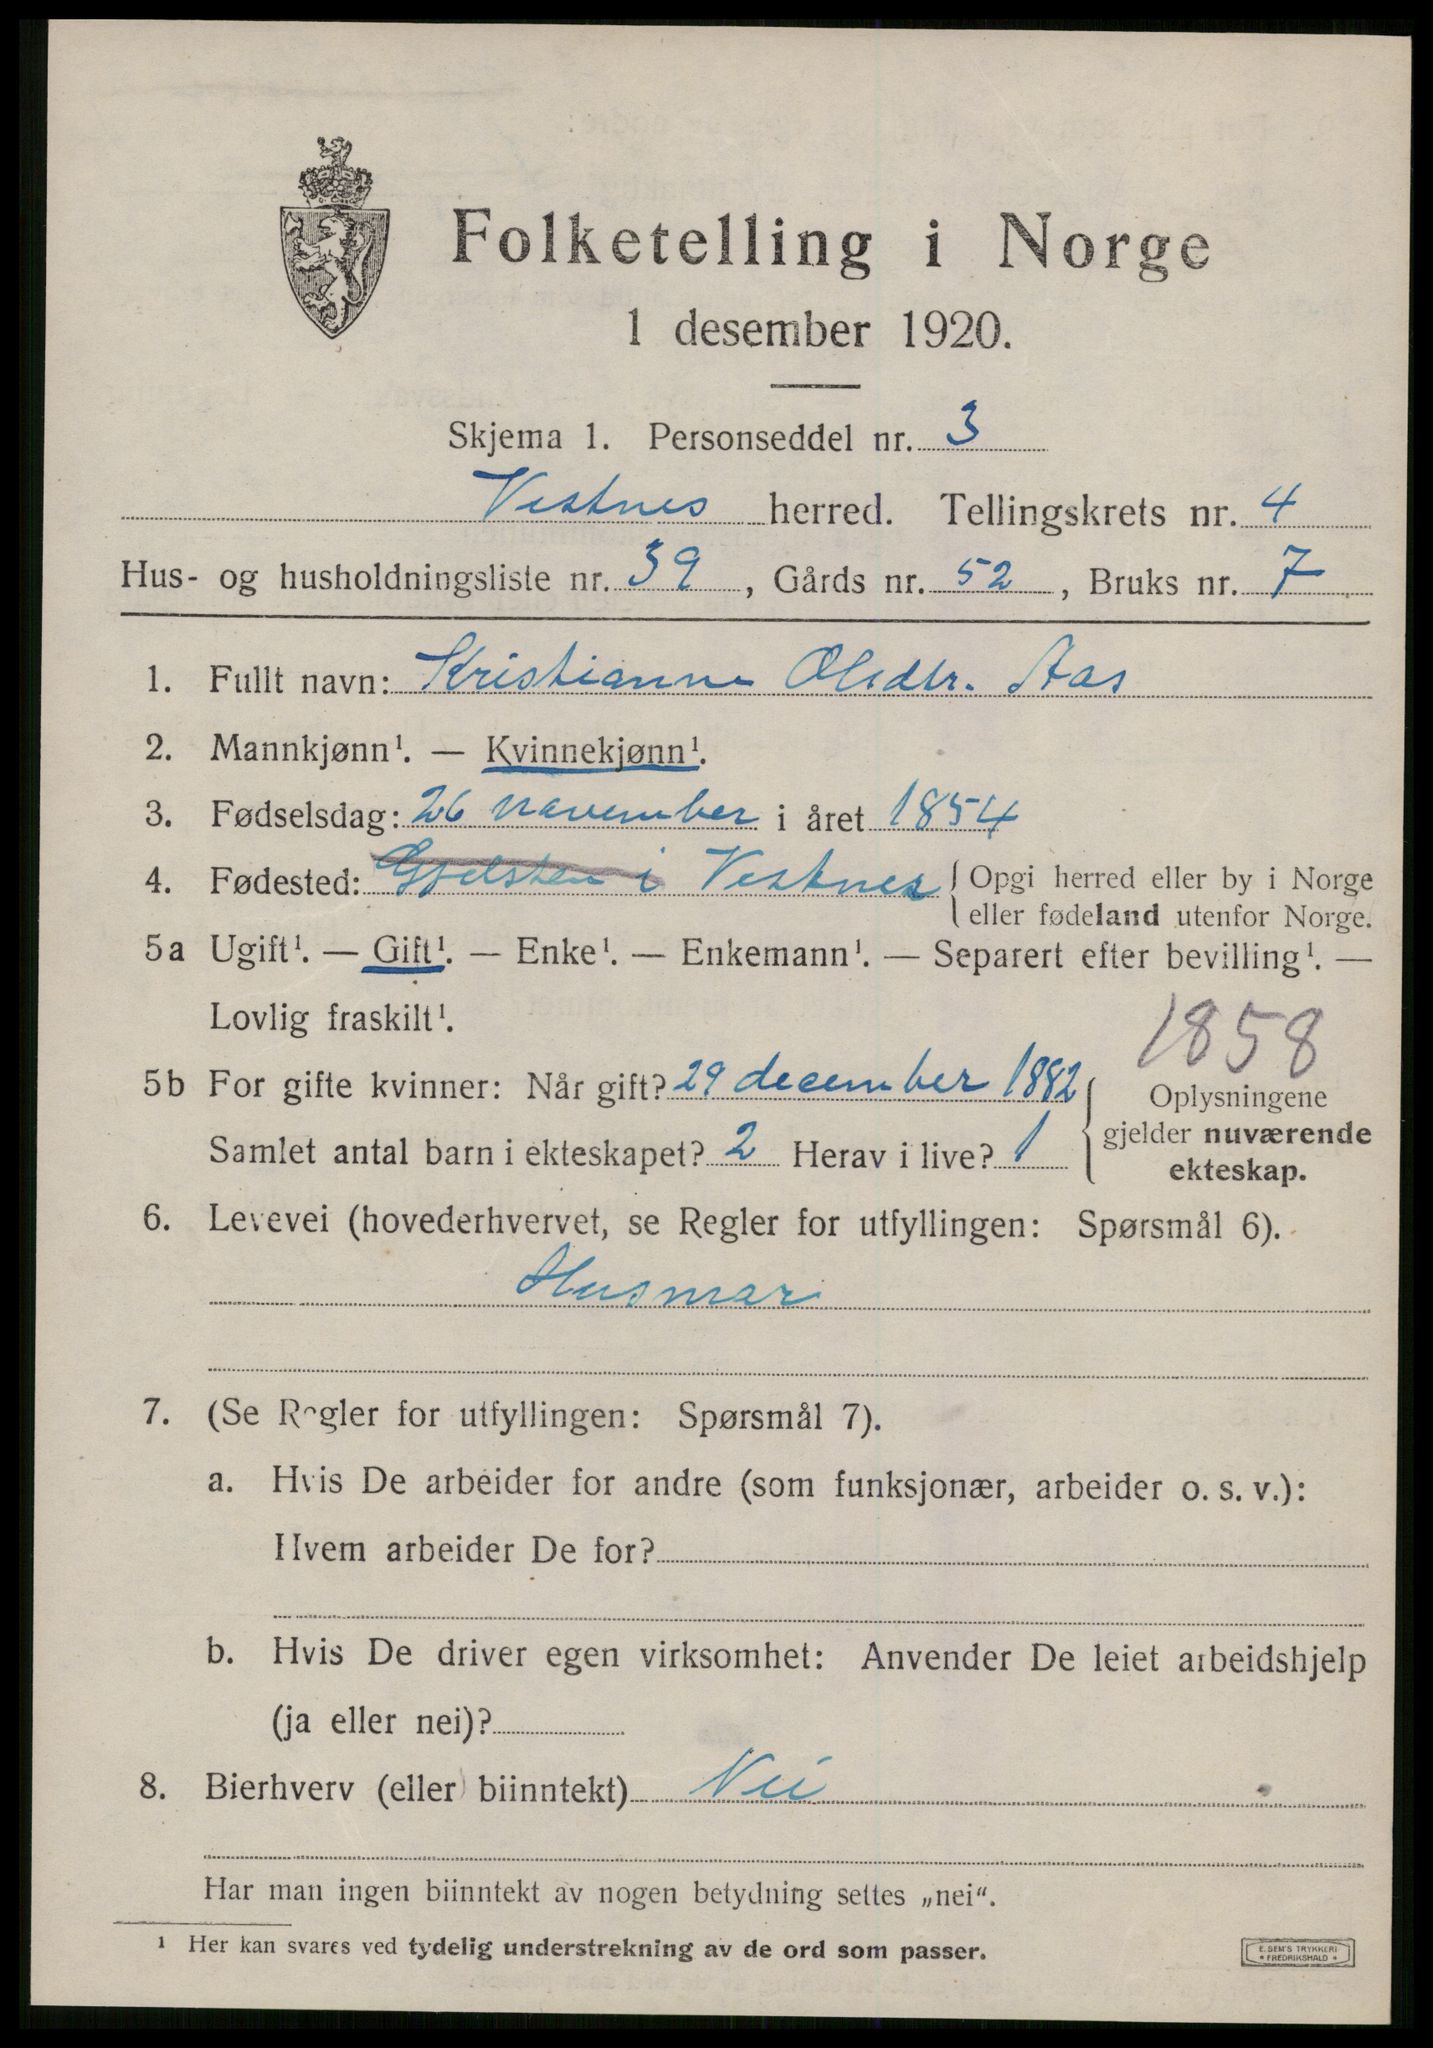 Folketelling i Norge
1 desember 1920.
Skjema 1. Personseddel nr. 3
Vestnes herred. Tellingskrets nr. 4
Hus- og husholdningsliste nr. 39, Gårds nr. 52, Bruks nr. 7
1. Fullt navn: Kristianne Olsdtr. Aas
2. Mannkjønn¹. — Kvinnekjønn¹.
3. Fødselsdag: 26 november i året 1854
4. Fødested: Gjelsten i Vestnes { Opgi herred eller by i Norge
eller fødeland utenfor Norge.
5a Ugift¹. — Gift¹. — Enke¹. — Enkemann¹. — Separert efter bevilling¹. —
Lovlig fraskilt¹.
1858
5b For gifte kvinner: Når gift? 29 december 1882
Samlet antal barn i ekteskapet? 2 Herav i live? 1
{ Oplysningene
gjelder nuværende
ekteskap.
6. Levevei (hovederhvervet, se Regler for utfyllingen: Spørsmål 6).
Husmor
7. (Se Regler for utfyllingen: Spørsmål 7).
a. Hvis De arbeider for andre (som funksjonær, arbeider o. s. v.):
Hvem arbeider De for?
b. Hvis De driver egen virksomhet: Anvender De leiet arbeidshjelp
(ja eller nei)?
8. Bierhverv (eller biinntekt) Nei
Har man ingen biinntekt av nogen betydning settes „nei“.
¹ Her kan svares ved tydelig understrekning av de ord som passer.
E. SEM'S TRYKKERI
* FREDRIKSHALD *